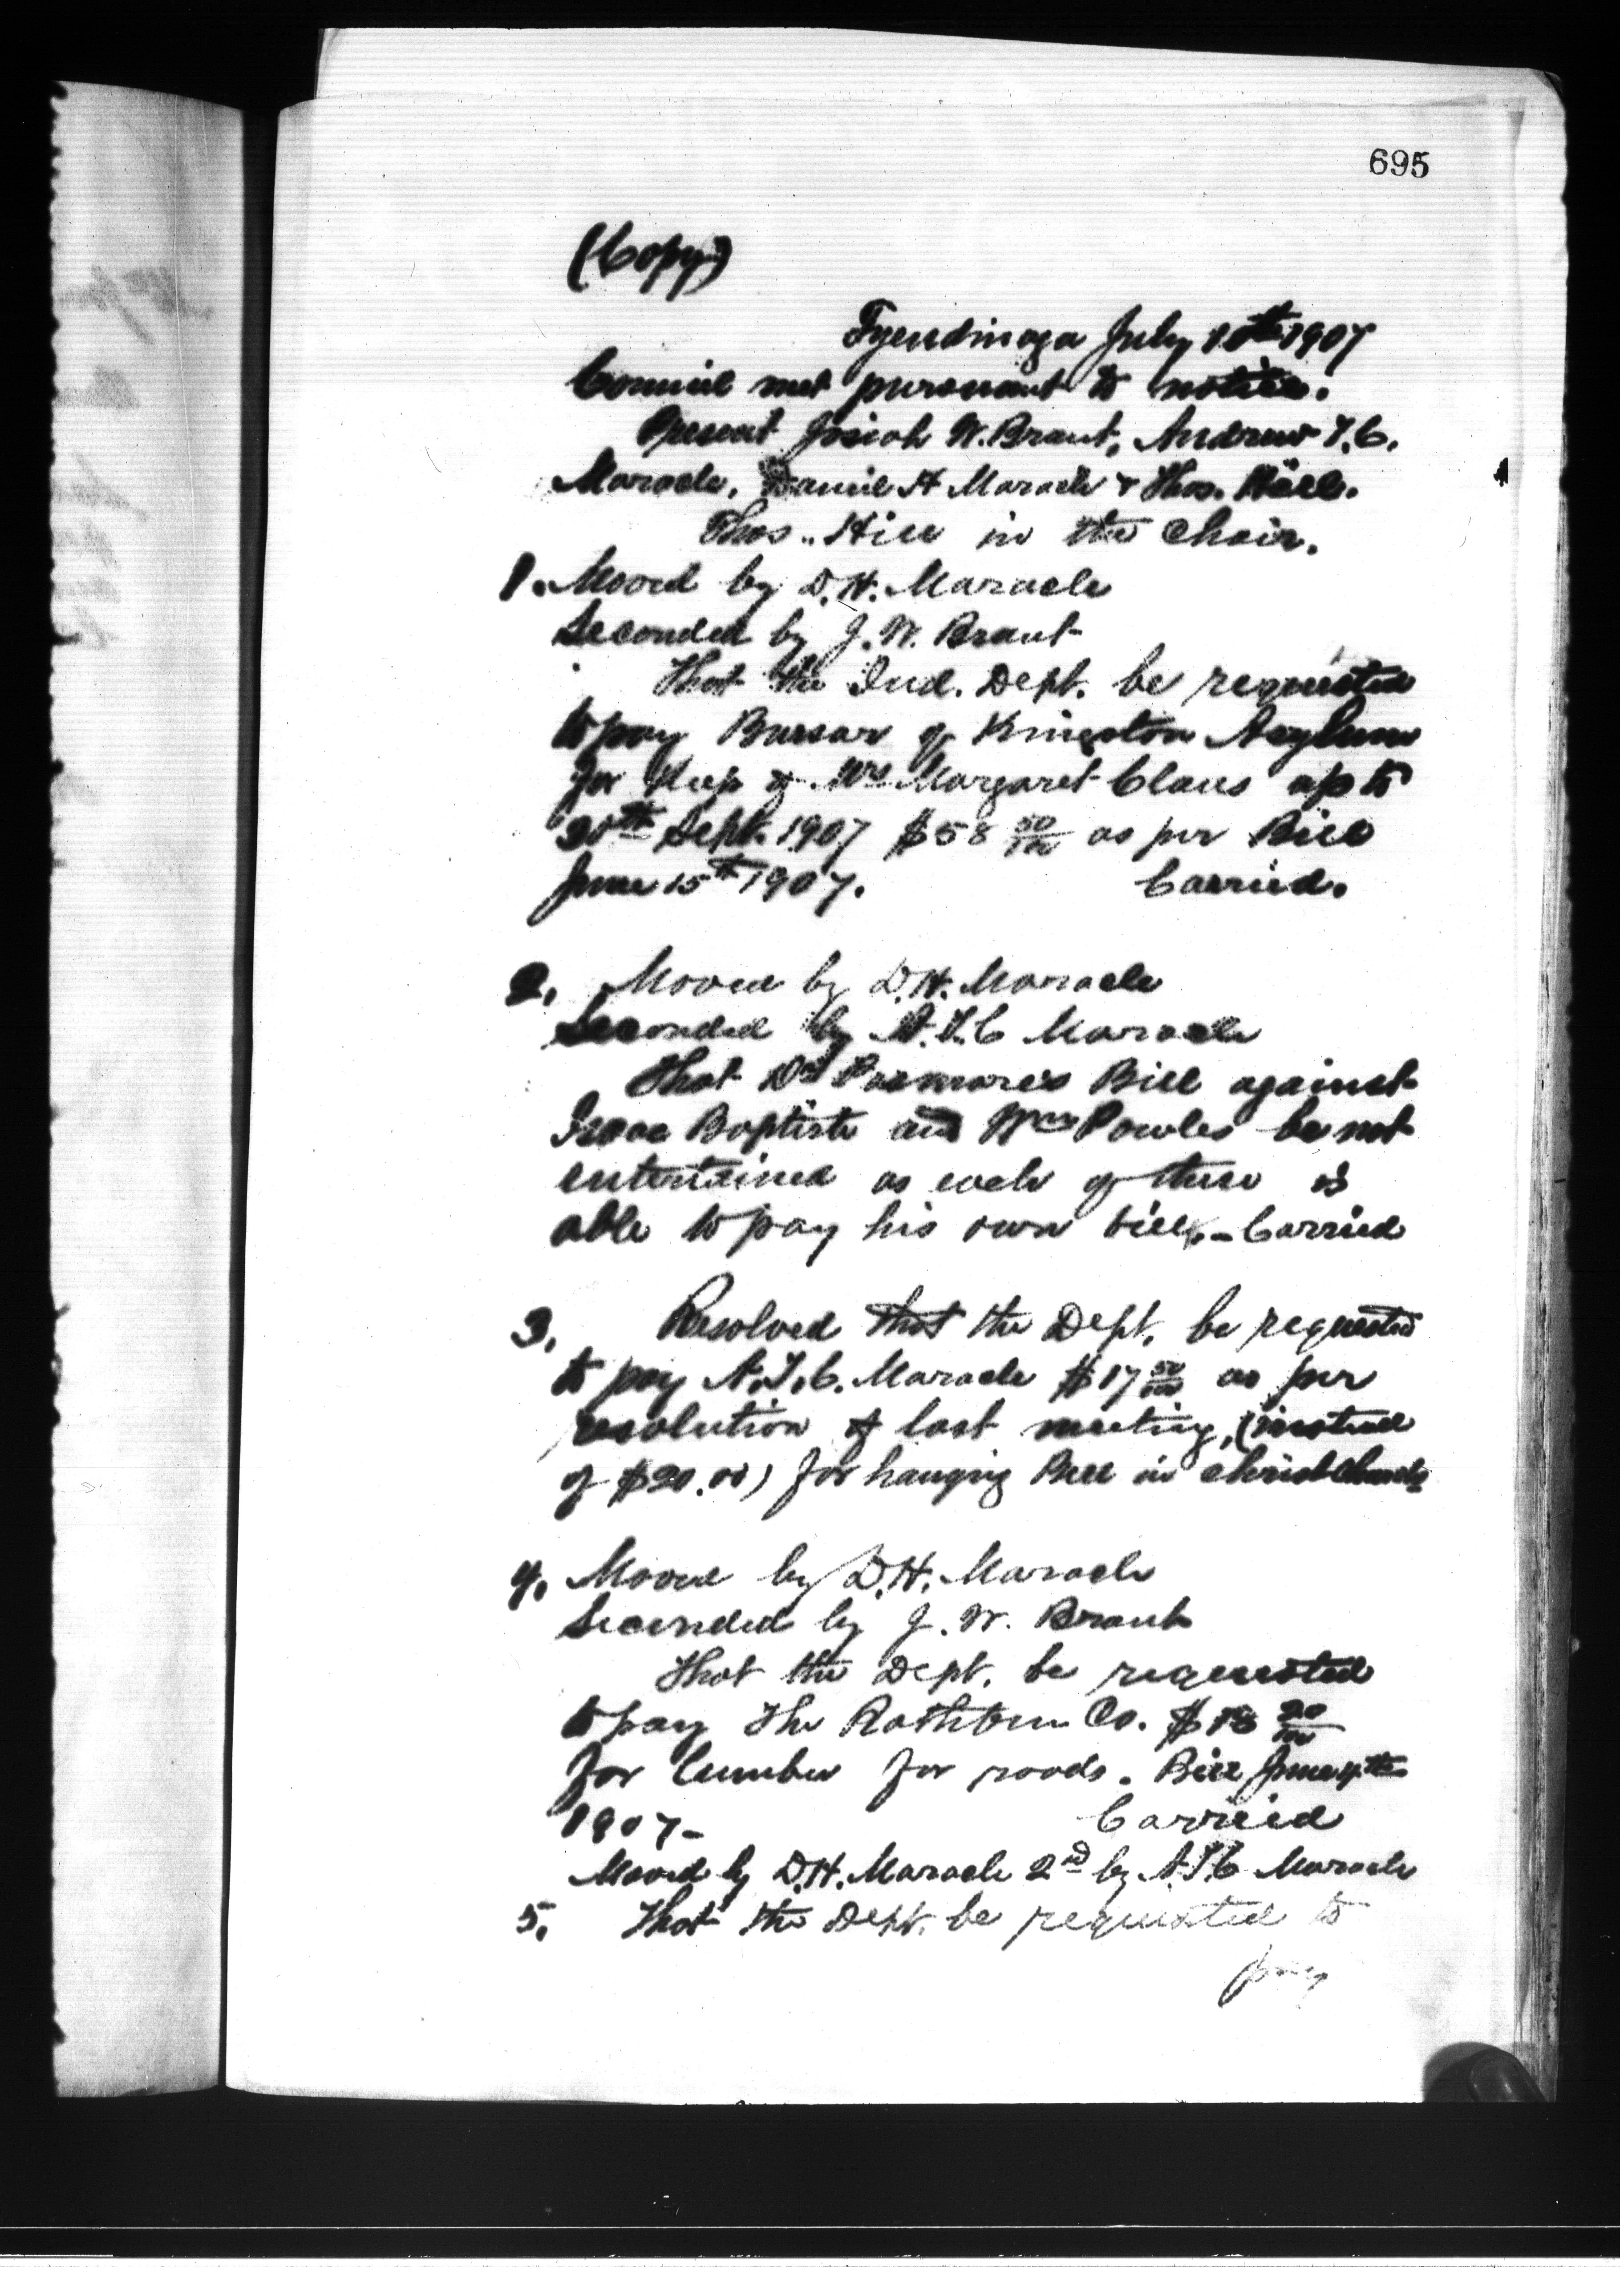 695
(Copy)
Tyendinaga July 10th 1907
Council met pursuant to notice.
Present Josiah W. Brant, Andrew T.C.
Maracle, Daniel H Maracle & Thos. Hill.
Thos.. Hill in the Chair.
1. Moved by D.H. Maracle
Seconded by J.W. Brant
That the Ind. Dept. be requested
to pay Bursar of Kingston Asylum
for Keep of Mrs Margaret Claus up to
Sept. 1907 $58 50/100 as per Bill
June 15th 1907. Carried.
2. Moved by D.H. Maracle
Seconded by A.T.C Maracle
That Dr Bill against
Isaac Baptiste and Wm Powles be not
entertained as each of these is
able to pay his own bill. - Carried
3. Resolved that the Dept. be requested
to pay A.T.C. Maracle $17 50/100 as per
resolution of last meeting, (instead
of $20.00) for hanging Bell in Christ Church
4. Moved by D.H. Maracle
Seconded by J.W. Brant
That the Dept. be requested
to pay The Rathbun Co. $18 20/100
for lumber for roads. Bill June 4th
1907 - Carried
Moved by D.H. Maracle 2nd by A.T.C Maracle
5. That the Dept. be requested to
pay